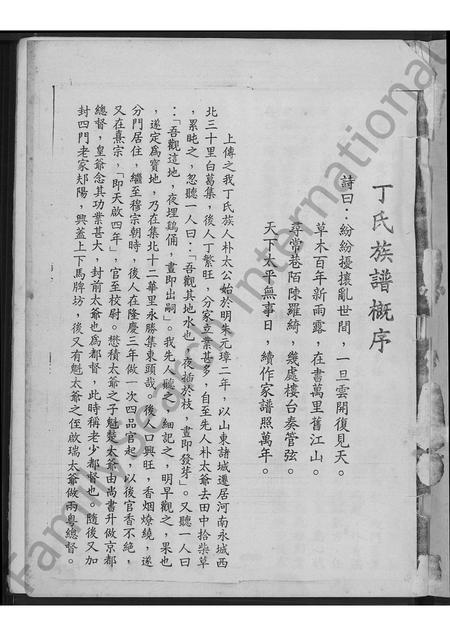 丁氏族譜概序
詩曰：紛紛擾攘亂世間，一旦雲開復見天。
草木百年新雨露，在書萬里舊江山。
尋常巷陌陳羅綺，幾處樓台奏管弦。
天下太平無事日，續作家譜照萬年。
上傳之我丁氏族人朴太公始於明朱元璋二年，以山東諸城遷居河南永城西
北三十里白葛集，後人丁繁旺，分家立業甚多，自至先人朴太爺去田中拾柴草
，累盹之，忽聽一人曰：「吾觀其地水也，夜插於枝，晝即發芽」。又聽一人曰
：「吾觀這地，夜埋鷄俑，晝即出嗣」。我先人聽了，細記之，明早觀之，果也
，遂定為寶地，乃在集北十二華里永勝集東頭哉。後人口興旺，香烟燎繞，遂
分門居住，繼至穆宗朝時，後人在隆慶三年做一次四品官起，以後官香不絕，
又在熹宗，「即天啟四年」，官至校尉。懋積太爺之子魁楚太爺由尚書升做京都
總督，皇爺念其功業甚大，封前太爺也為都督，此時稱老少都督也。隨後又加
封四門老家郟陽，興蓋上下馬牌坊，後又有魁太爺之侄啟瑞太爺做兩粵總督。
FamilySearch International